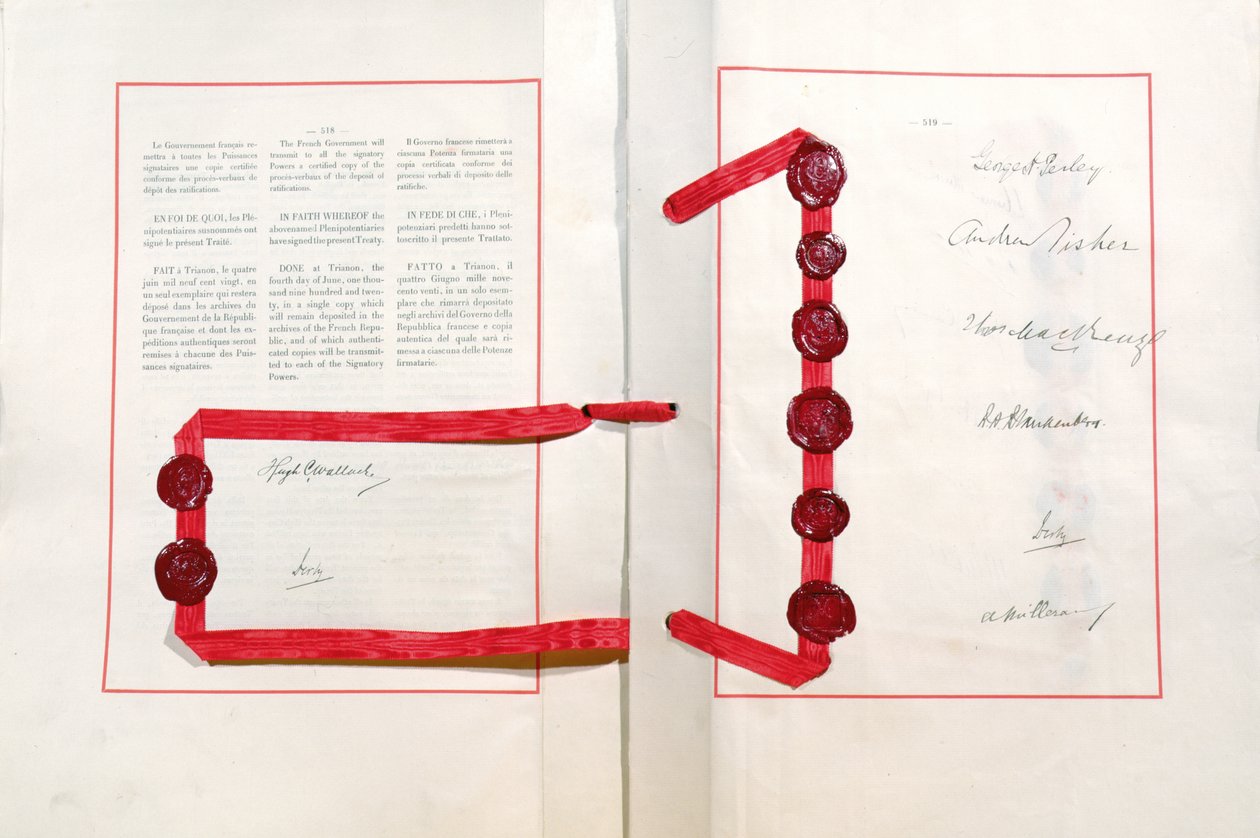 — 518 —
Le Gouvernement français re-
mettra à toutes les Puissances
signataires une copie certifiée
conforme des procès-verbaux de
dépôt des ratifications.
EN FOI DE QUOI, les Plé-
nipotentiaires susnommés ont
signé le présent Traité.
FAIT à Trianon, le quatre
juin mil neuf cent vingt, en
un seul exemplaire qui restera
déposé dans les archives du
Gouvernement de la Républi-
que française et dont les ex-
péditions authentiques seront
remises à chacune des Puis-
sances signataires.
The French Government will
transmit to all the signatory
Powers a certified copy of the
procès-verbaux of the deposit of
ratifications.
IN FAITH WHEREOF the
abovenamed Plenipotentiaries
have signed the present Treaty.
DONE at Trianon, the
fourth day of June, one thou-
sand nine hundred and twen-
ty, in a single copy which
will remain deposited in the
archives of the French Repu-
blic, and of which authenti-
cated copies will be transmit-
ted to each of the Signatory
Powers.
Il Governo francese rimetterà a
ciascuna Potenza firmataria una
copia certificata conforme dei
processi verbali di deposito delle
ratifiche.
IN FEDE DI CHE, i Pleni-
potenziari predetti hanno sot-
toscritto il presente Trattato.
FATTO a Trianon, il
quattro Giugno mille nove-
cento venti, in un solo esem-
plare che rimarrà depositato
negli archivi del Governo della
Repubblica francese e copia
autentica del quale sarà ri-
messa a ciascuna delle Potenze
firmatarie.
Hugh C Wallace
Derby
— 519 —
George H Perley.
Andrew Fisher
Thos MacKenzie
R A Blankenberg.
Derby
A Millerand